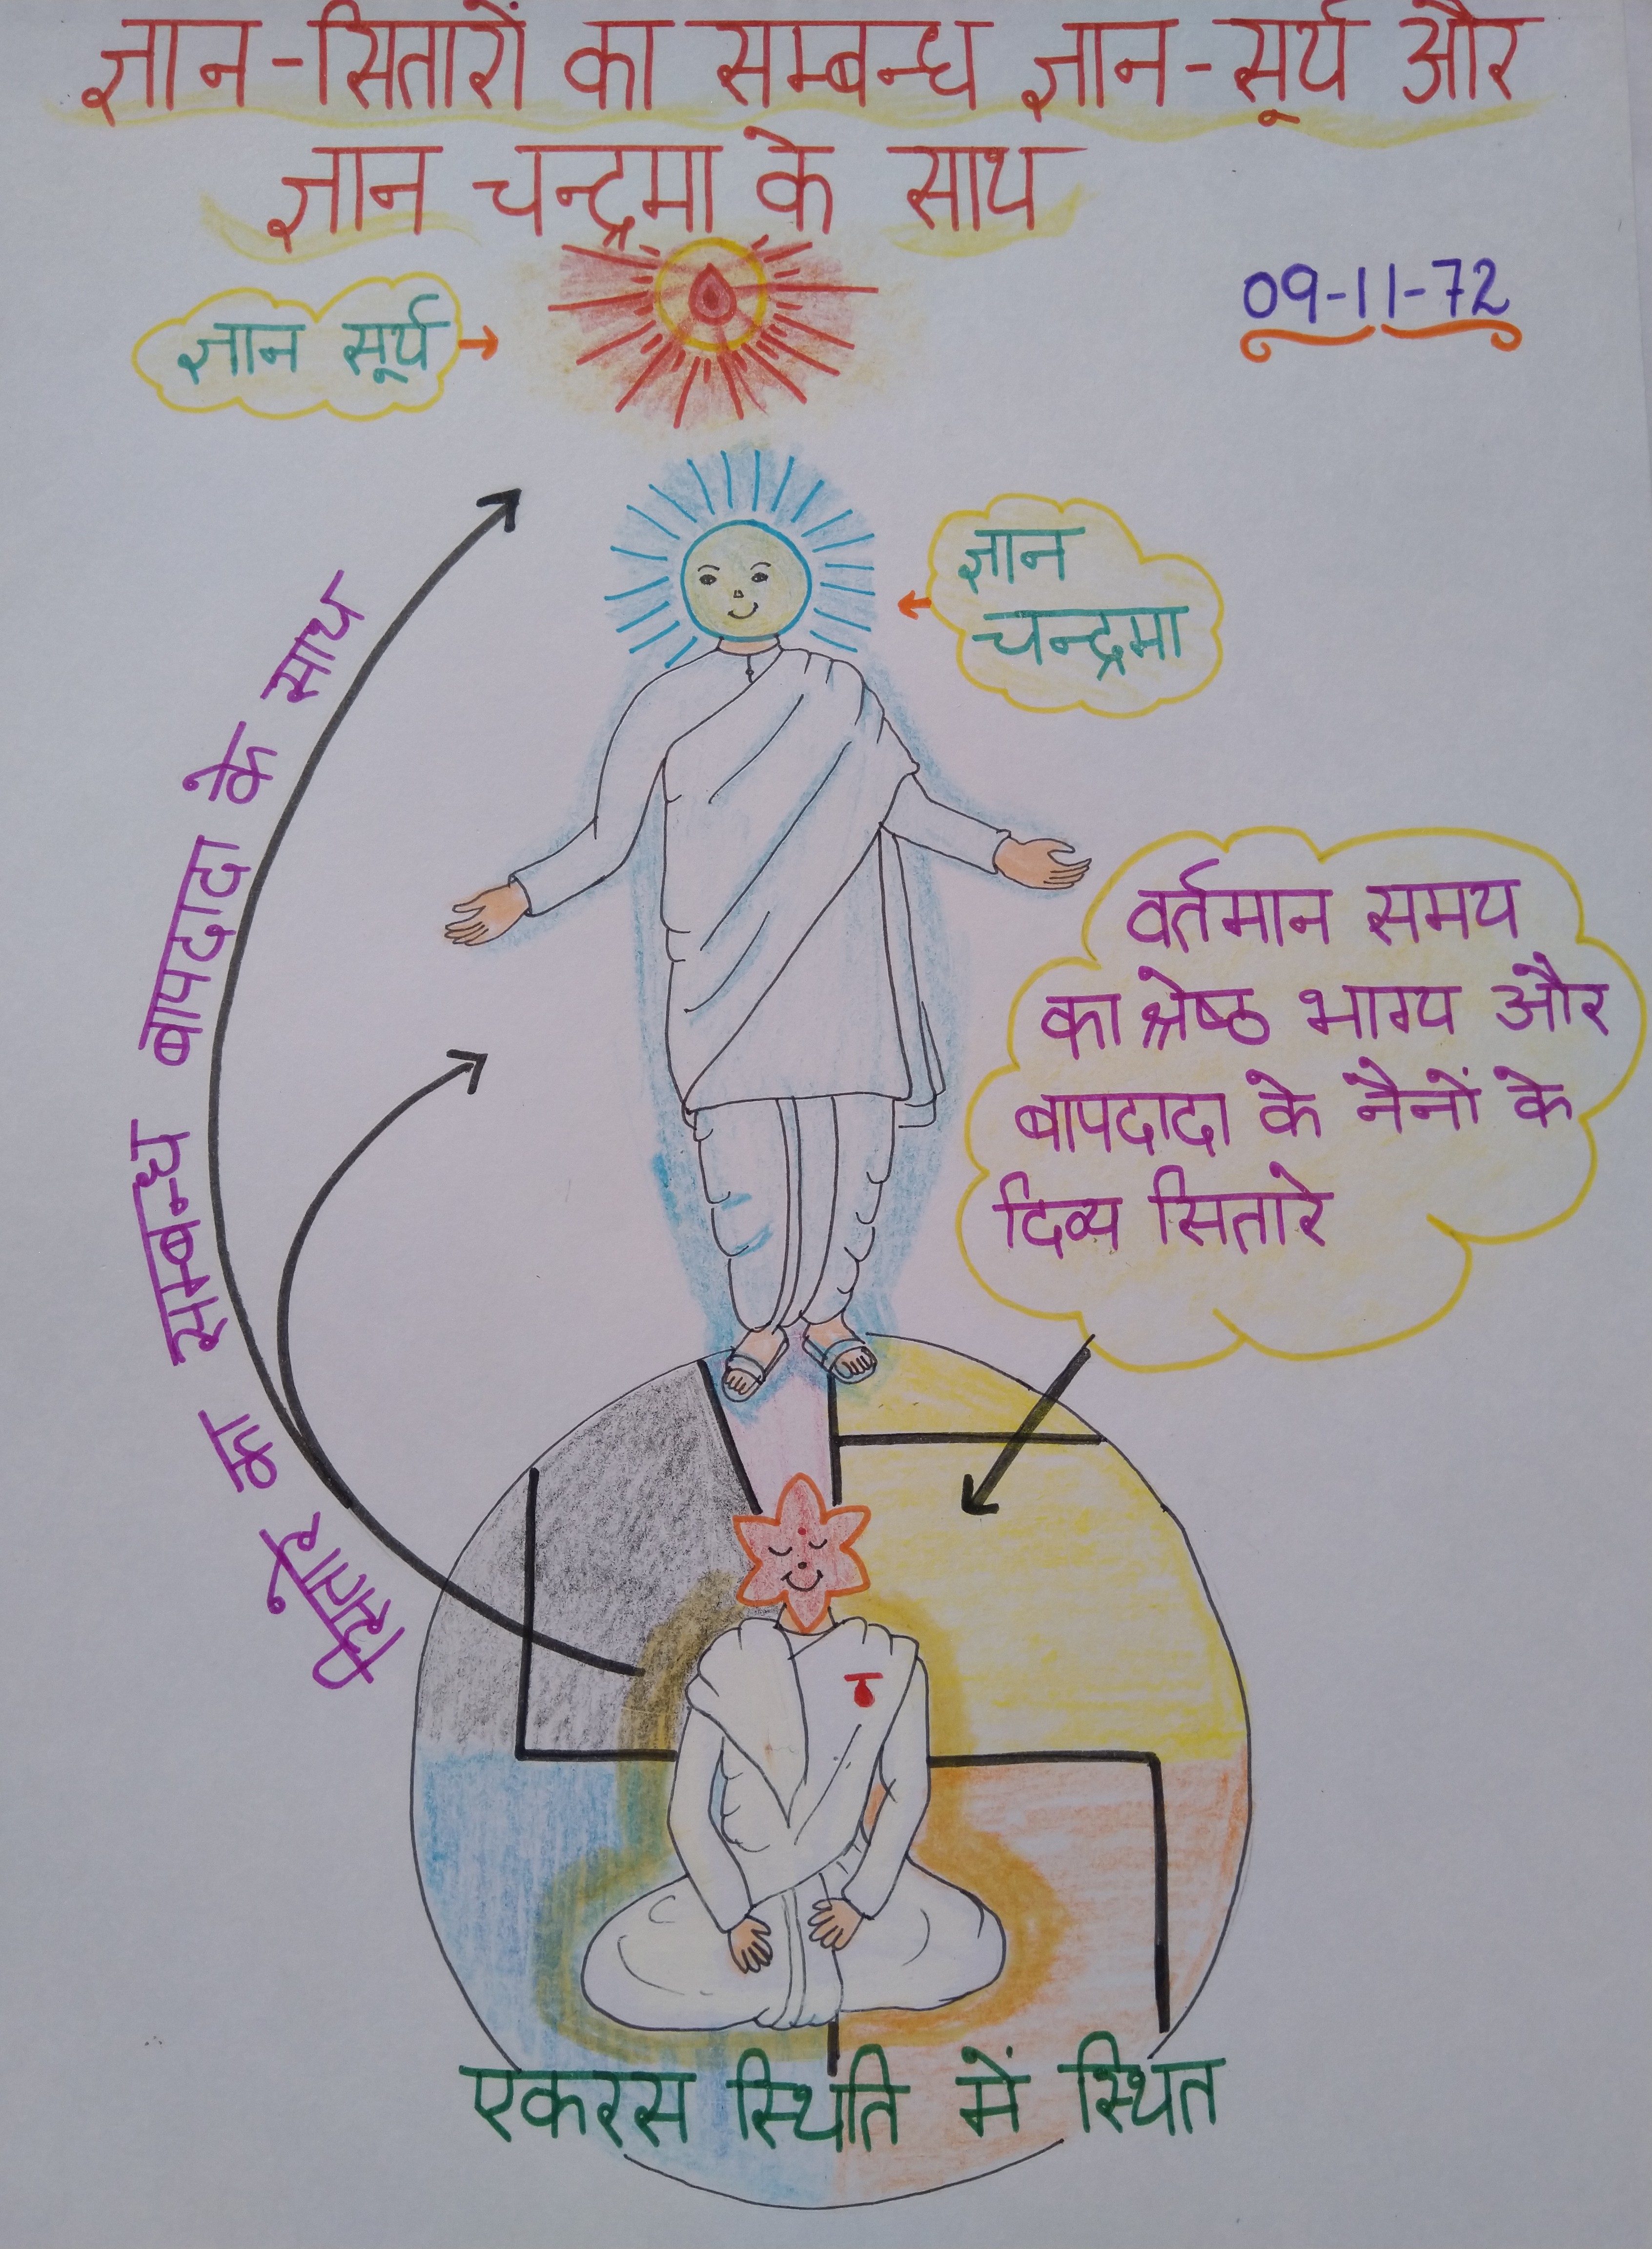 ज्ञान-सितारों का सम्बन्ध ज्ञान-सूर्य और
ज्ञान चन्द्रमा के साथ
09-11-72
ज्ञान सूर्य
ज्ञान
चन्द्रमा
सितारे का सम्बन्ध बापदादा के साथ
वर्तमान समय
का श्रेष्ठ भाग्य और
बापदादा के नैनों के
दिव्य सितारे
एकरस स्थिति में स्थित